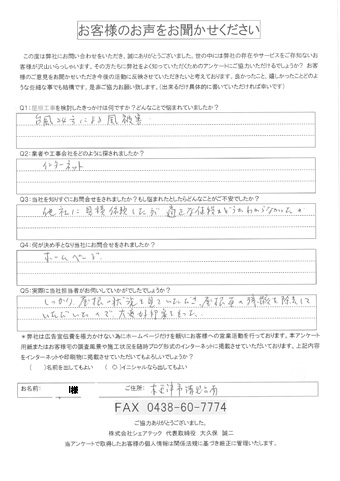 お客様のお声をお聞かせください
この度は弊社にお問い合わせをいただき、誠にありがとうございました。世の中には弊社の存在やサービスをご存知ないお
客様が沢山いらっしゃいます。その方たちに弊社をよく知っていただくためのアンケートにご協力いただけるでしょうか？ お客
様のご意見をお聞かせいただき今後の活動に反映させていただきたいと考えております。良かったこと、嬉しかったことどのよ
うな些細な事でも結構です。是非ご協力お願い致します。（出来るだけ具体的に書いていただければ幸いです）
Q1：屋根工事を検討したきっかけは何ですか？どんなことで悩まれていましたか？
台風24号による風被害
Q2：業者や工事会社をどのように探されましたか？
インターネット
Q3：当社を知りすぐにお問合せをされましたか？もし悩まれたとしたらどんなことがご不安でしたか？
他社に見積依頼したが 適正な価格かどうかわからなかった
Q4：何が決め手となり当社にお問合せをされましたか？
ホームページ
Q5：実際に当社担当者がお伺いしていかがでしたでしょうか？
しっかり、屋根の状況を見ていただき、屋根の
いただいたので、大変好印象もった。
＊弊社は広告宣伝費を極力かけない為にホームページだけを頼りにお客様への営業活動を行っております。本アンケート
用紙またはお客様宅の調査風景や施工状況を随時ブログ形式のインターネットに掲載させていただいております。上記内容
をインターネットや印刷物に掲載させていただいてもよろしいでしょうか？
（　）名前を出してもよい　（○）イニシャルなら出してもよい
お名前： I様 ご住所： 木更津市清見台南
FAX 0438-60-7774
ご協力ありがとうございました。
株式会社シェアテック 代表取締役 大久保 誠二
当アンケートで取得したお客様の個人情報は関係法規に基づき厳正に管理いたします。